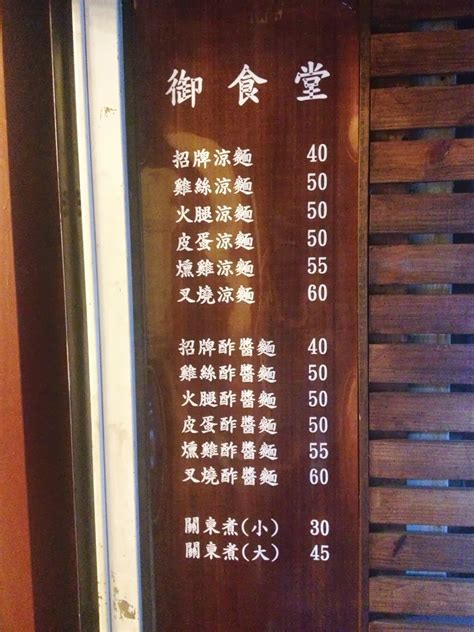 御食堂
招牌涼麵 40
雞絲涼麵 50
火腿涼麵 50
皮蛋涼麵 50
燻雞涼麵 55
叉燒涼麵 60
招牌酢醬麵 40
雞絲酢醬麵 50
火腿酢醬麵 50
皮蛋酢醬麵 50
燻雞酢醬麵 55
叉燒酢醬麵 60
關東煮(小) 30
關東煮(大) 45